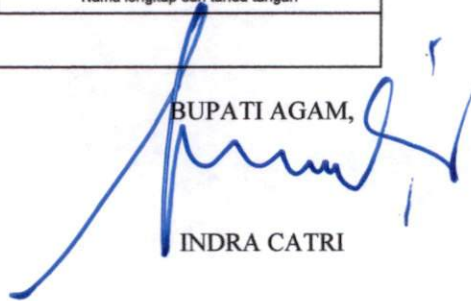 Nama lengkap dan tanda tangan
BUPATI AGAM,
INDRA CATRI